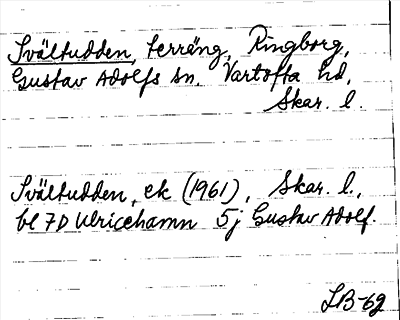 Svältudden, terräng, Ringborg,
Gustav Adolfs sn. Vartofta hd,
Skar. l.
Svältudden, ek (1961), Skar. l.,
bl 7D Ulricehamn 5j Gustav Adolf.
LB-62